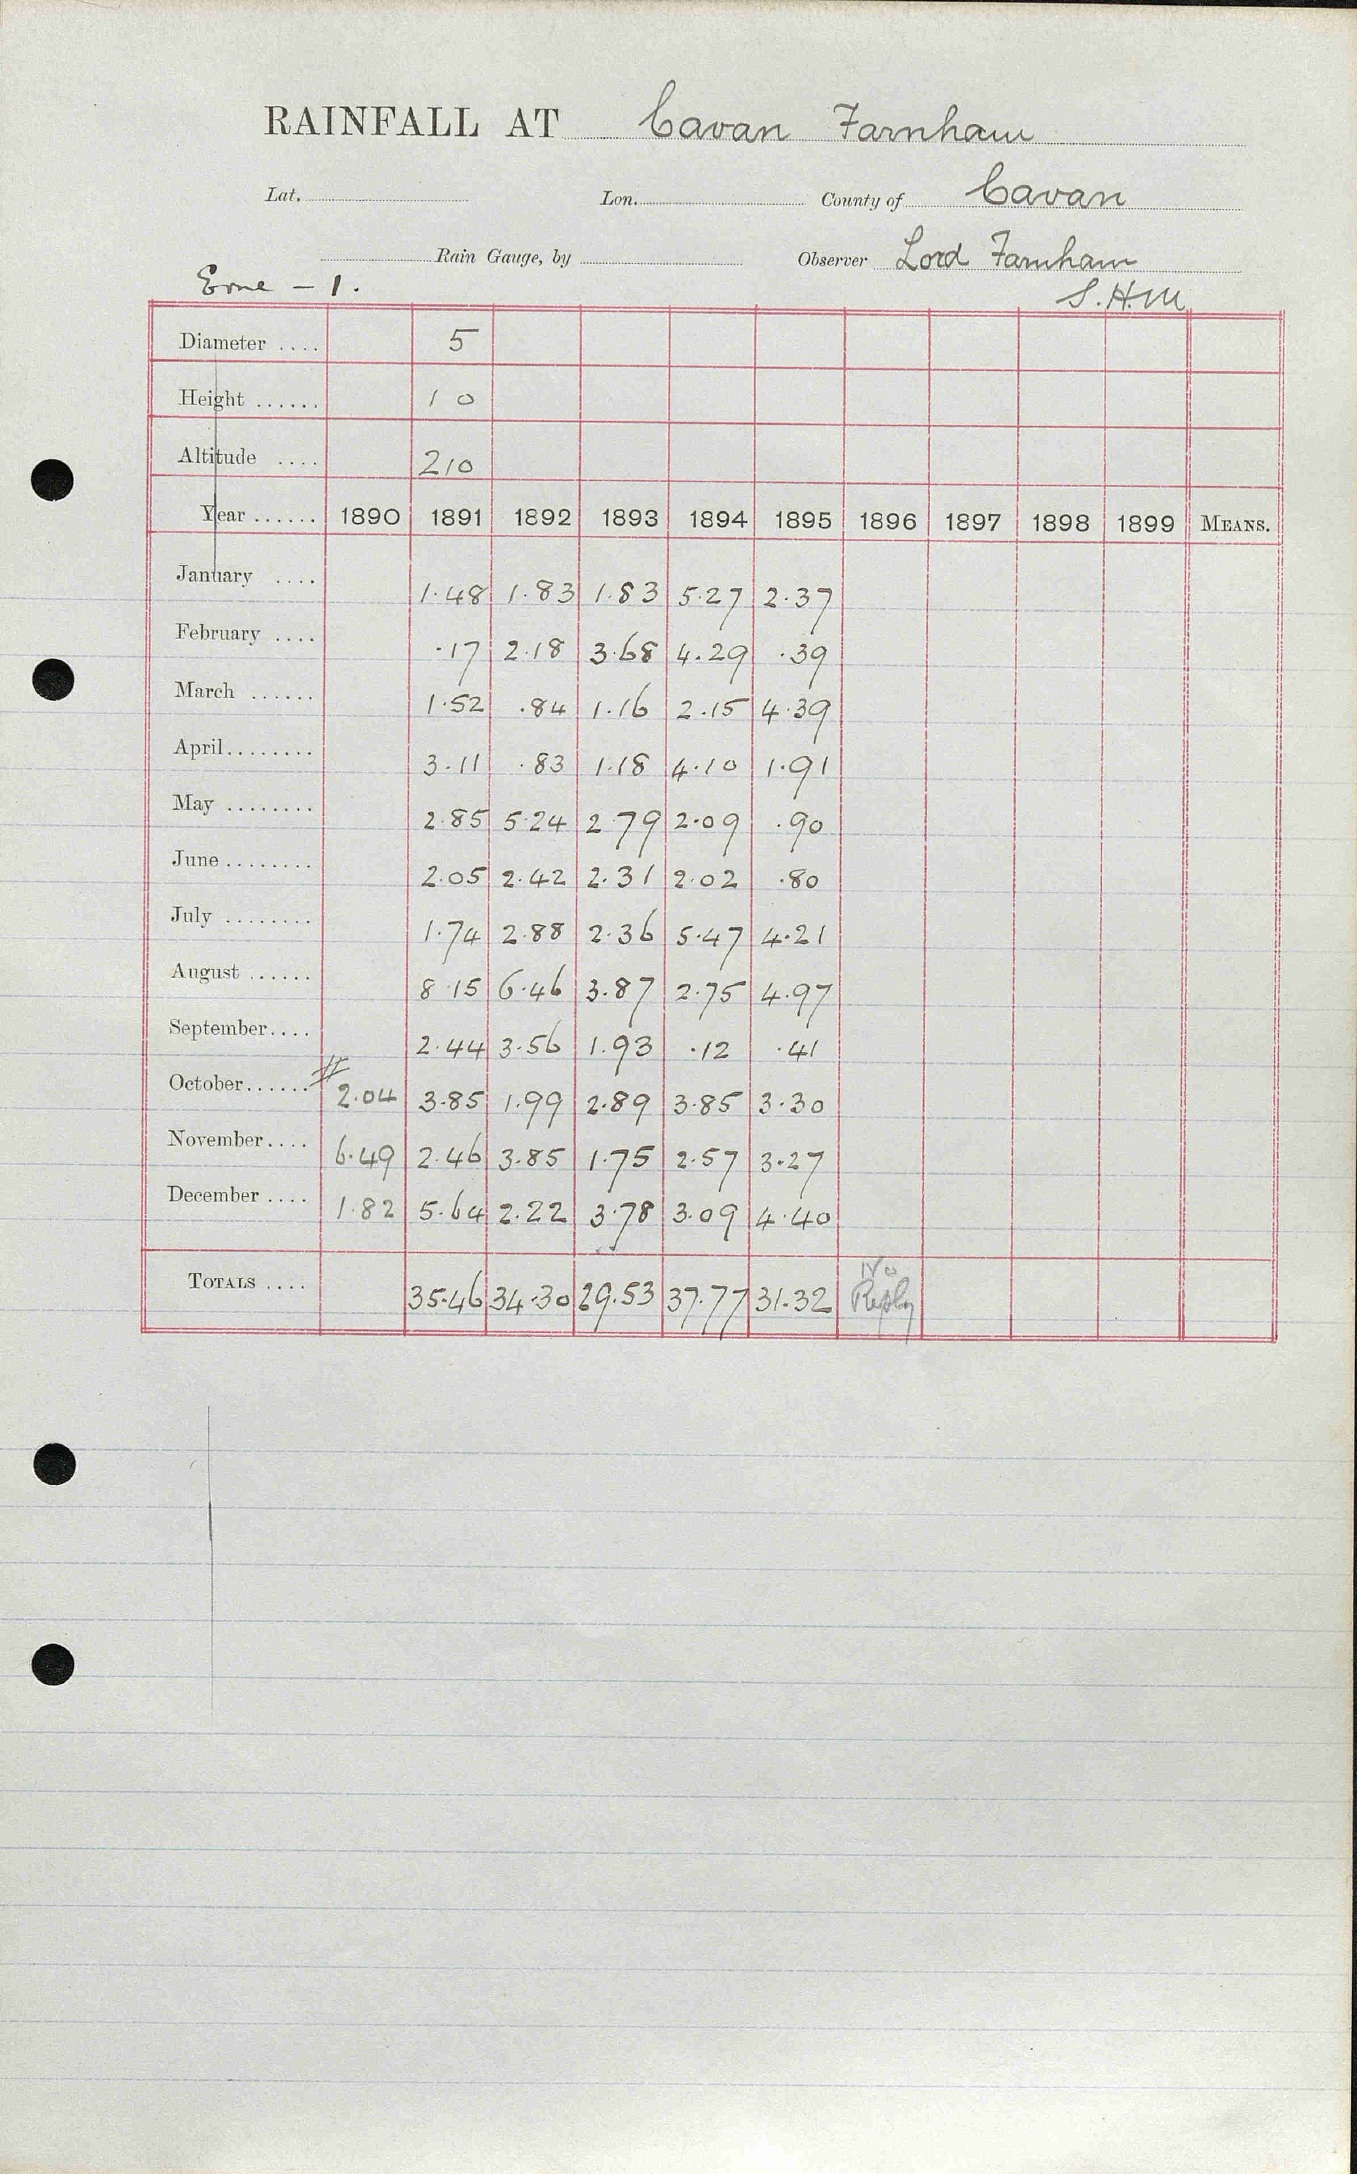 RAINFALL AT Cavan Farnham
Lat. Lon. County of Cavan
Rain Gauge, by Observer Lord Farnham
Erne - 1. S.H.M
Diameter .... 5
Height ...... 10
Altitude .... 210
Year ...... 1890 1891 1892 1893 1894 1895 1896 1897 1898 1899 MEANS.
January .... 1.48 1.83 1.83 5.27 2.37
February .... .17 2.18 3.68 4.29 .39
March ...... 1.52 .84 1.16 2.15 4.39
April........ 3.11 .83 1.18 4.10 1.91
May ........ 2.85 5.24 2.79 2.09 .90
June ........ 2.05 2.42 2.31 2.02 .80
July ........ 1.74 2.88 2.36 5.47 4.21
August ...... 8.15 6.46 3.87 2.75 4.97
September.... 2.44 3.56 1.93 .12 .41
October...... 2.04 3.85 1.99 2.89 3.85 3.30
November.... 6.49 2.46 3.85 1.75 2.57 3.27
December .... 1.82 5.64 2.22 3.78 3.09 4.40
TOTALS .... 35.46 34.30 29.53 37.77 31.32 No Reply